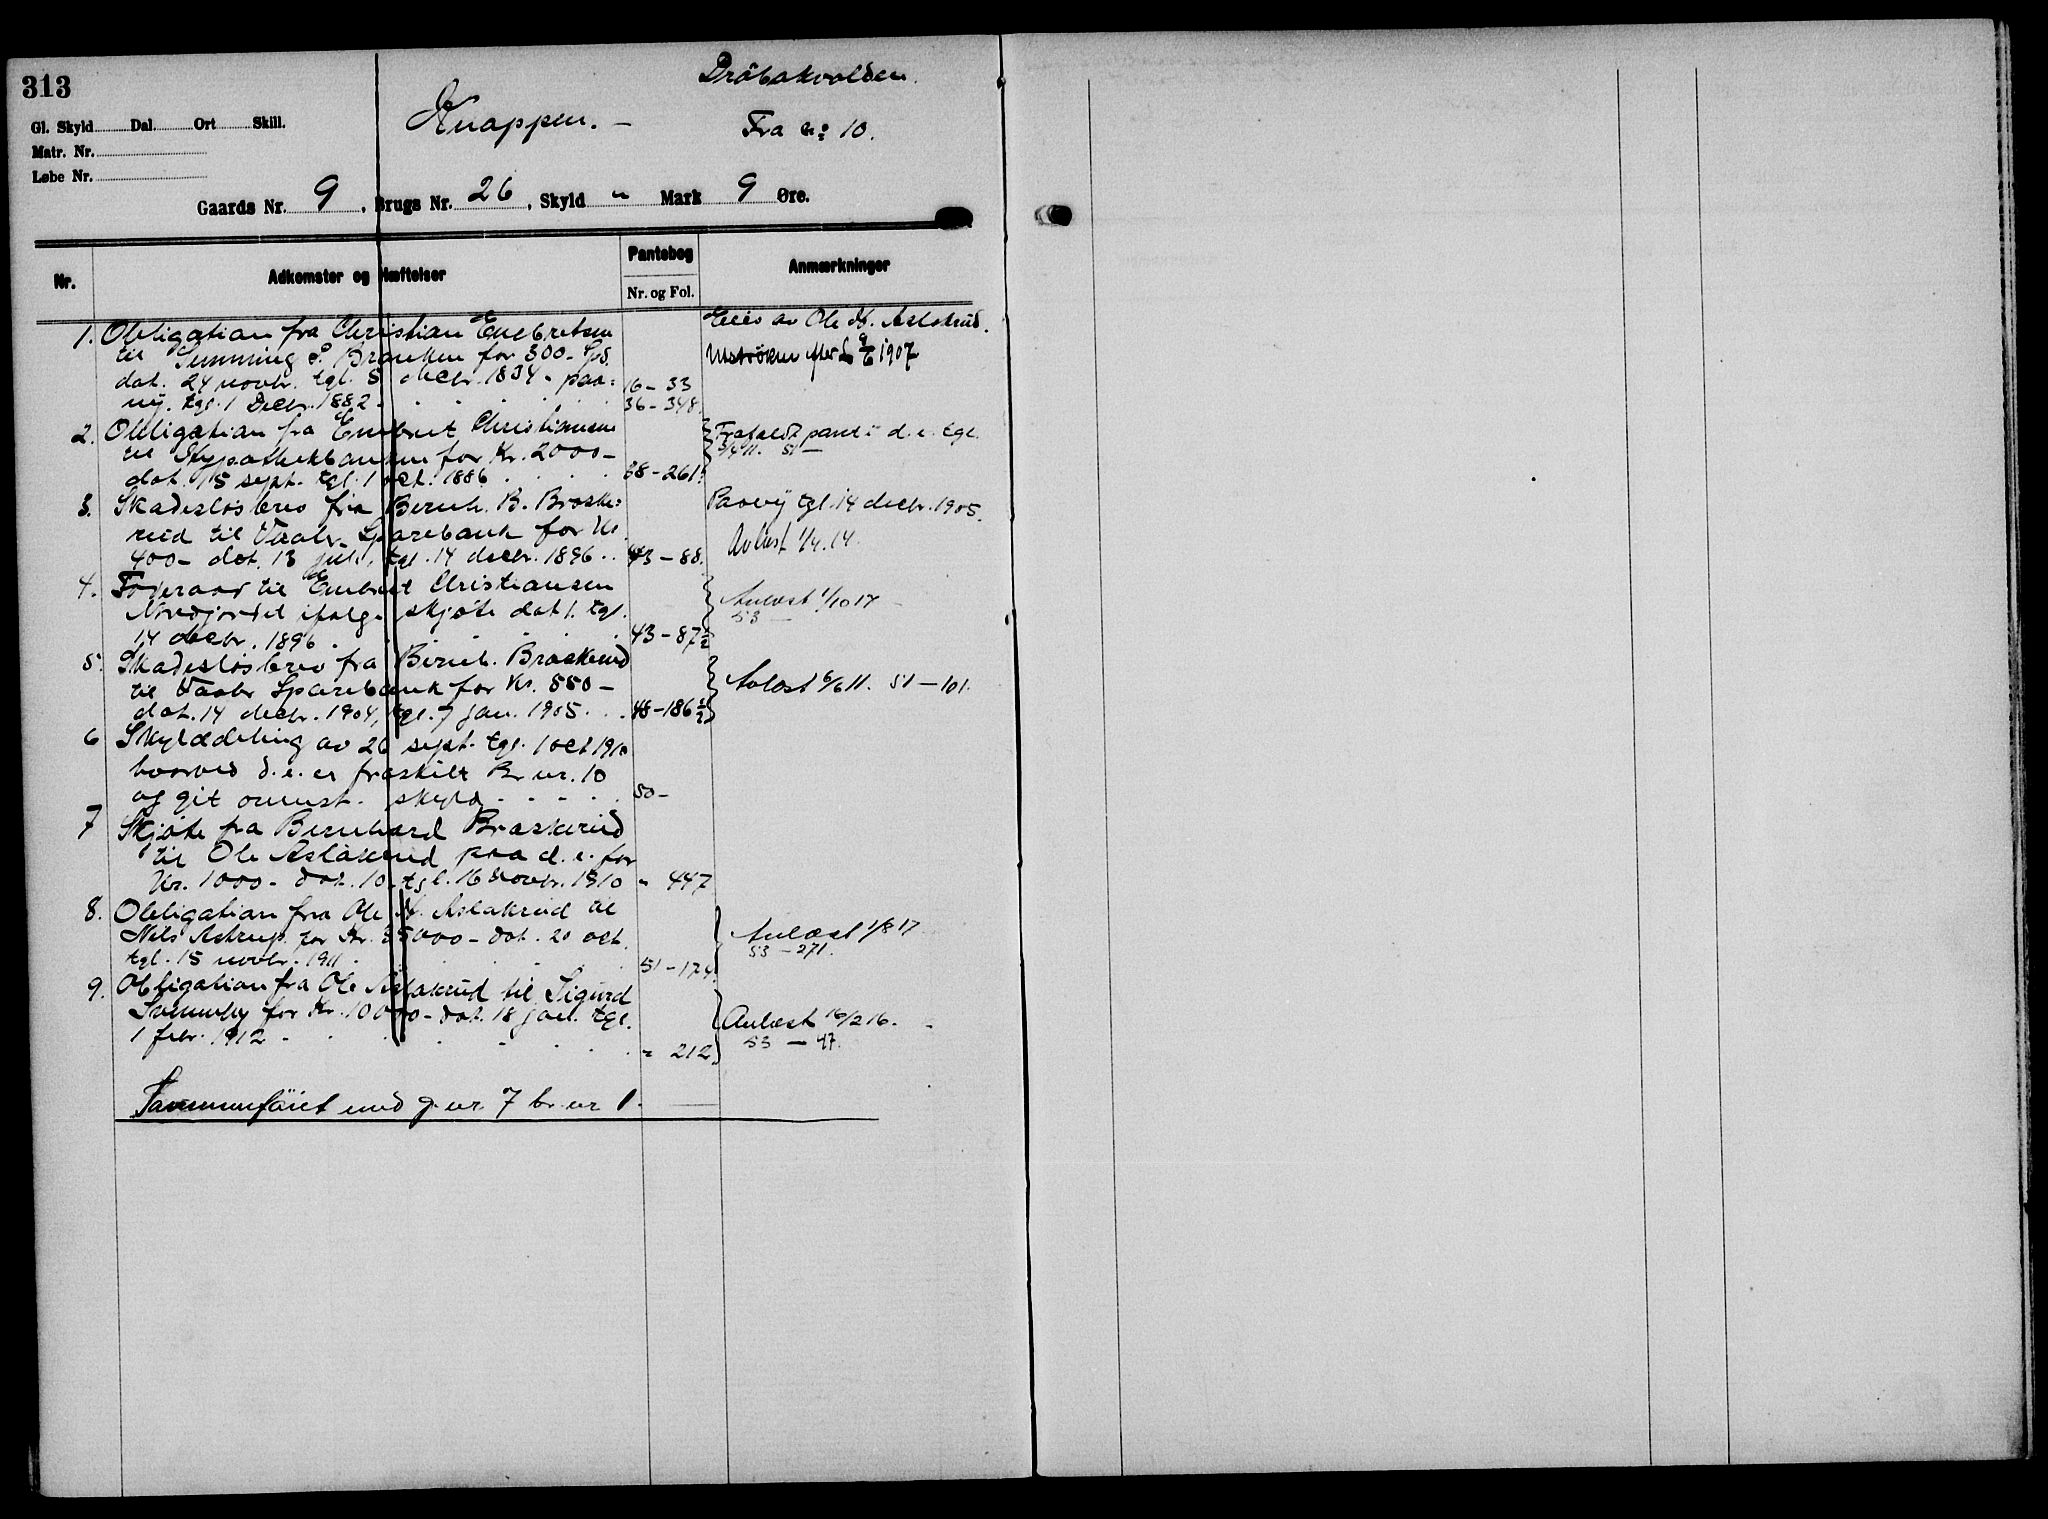 313
Drôbakvolden.
Knappen. —
Fra no 10.
Gl. Skyld Dal. Ort Skill.
Matr. Nr.
Løbe Nr.
Gaards Nr. 9, Brugs Nr. 26, Skyld " Mark 9 Øre.
Nr. Adkomster og Hæftelser Pantebog Nr. og Fol. Anmærkninger
1. Obligation fra Christian Enebretsen Eies av Ole N. Aslakrud.
til for 300 - Spd. efter L 9/6 1907
dat. 24 novbr. tgl. 5 decbr. 1834 - paa= 16 - 33
ny. tgl. 1 Decbr. 1882 - 36 - 348.
2. Obligation fra Enebret Christiansen Frafaldt pant i d. e. tgl.
til Hypothekbanken for Kr. 2000 - 51 —
dat. 15 sept. tgl. 1 oct. 1886. 38 - 261.
3. Skadesløsbrev fra Bernh. B. Braske= Paany tgl. 14 decbr. 1905.
rud til Vaaler Sparebank for Kr
400 - dat. 13 juli, tgl. 14 decbr. 1896 . . 43 - 88. Avlæst 1/4.14.
4. Føderaad til Enebret Christiansen
Nordjordet ifølge skjøte dat. tgl. Avlæst 1/10 17
14 decbr. 1896 . 43 - 87 1/2 53 —
5. Skadesløsbrev fra Bernh. Braskerud
til Vaaler Sparebank for Kr. 550 - Avlæst 6/6 11. 51 - 101.
dat. 14 decbr. 1904, tgl. 7 jan. 1905 . . . 48 - 186 1/2
6 Skylddeling av 26 sept. tgl. 1 oct 1910
hvorved d. e. er fraskilt Br nr. 10
og git ovennst. skyld . . . . 50 -
7 Skjøte fra Bernhard Braskerud
til Ole Aslakrud paa d. e. for
Kr. 1000 - dat. 10 tgl. 16 Novbr. 1910 " 447
8. Obligation fra Ole N. Aslakrud til
Nils Astrup for Kr. 35000 - dat. 20 oct. Avlæst 1/8 17
tgl. 15 novbr. 1911 . 51 - 174. 53 - 271.
9. Obligation fra Ole Aslakrud til Sigurd
Svenneby for Kr. 10000 - dat. 18 jan. tgl. Avlæst 16/2 16.
1 febr. 1912 - " 212 53 - 47.
Sammenføiet med g. nr. 7 br. nr 1.